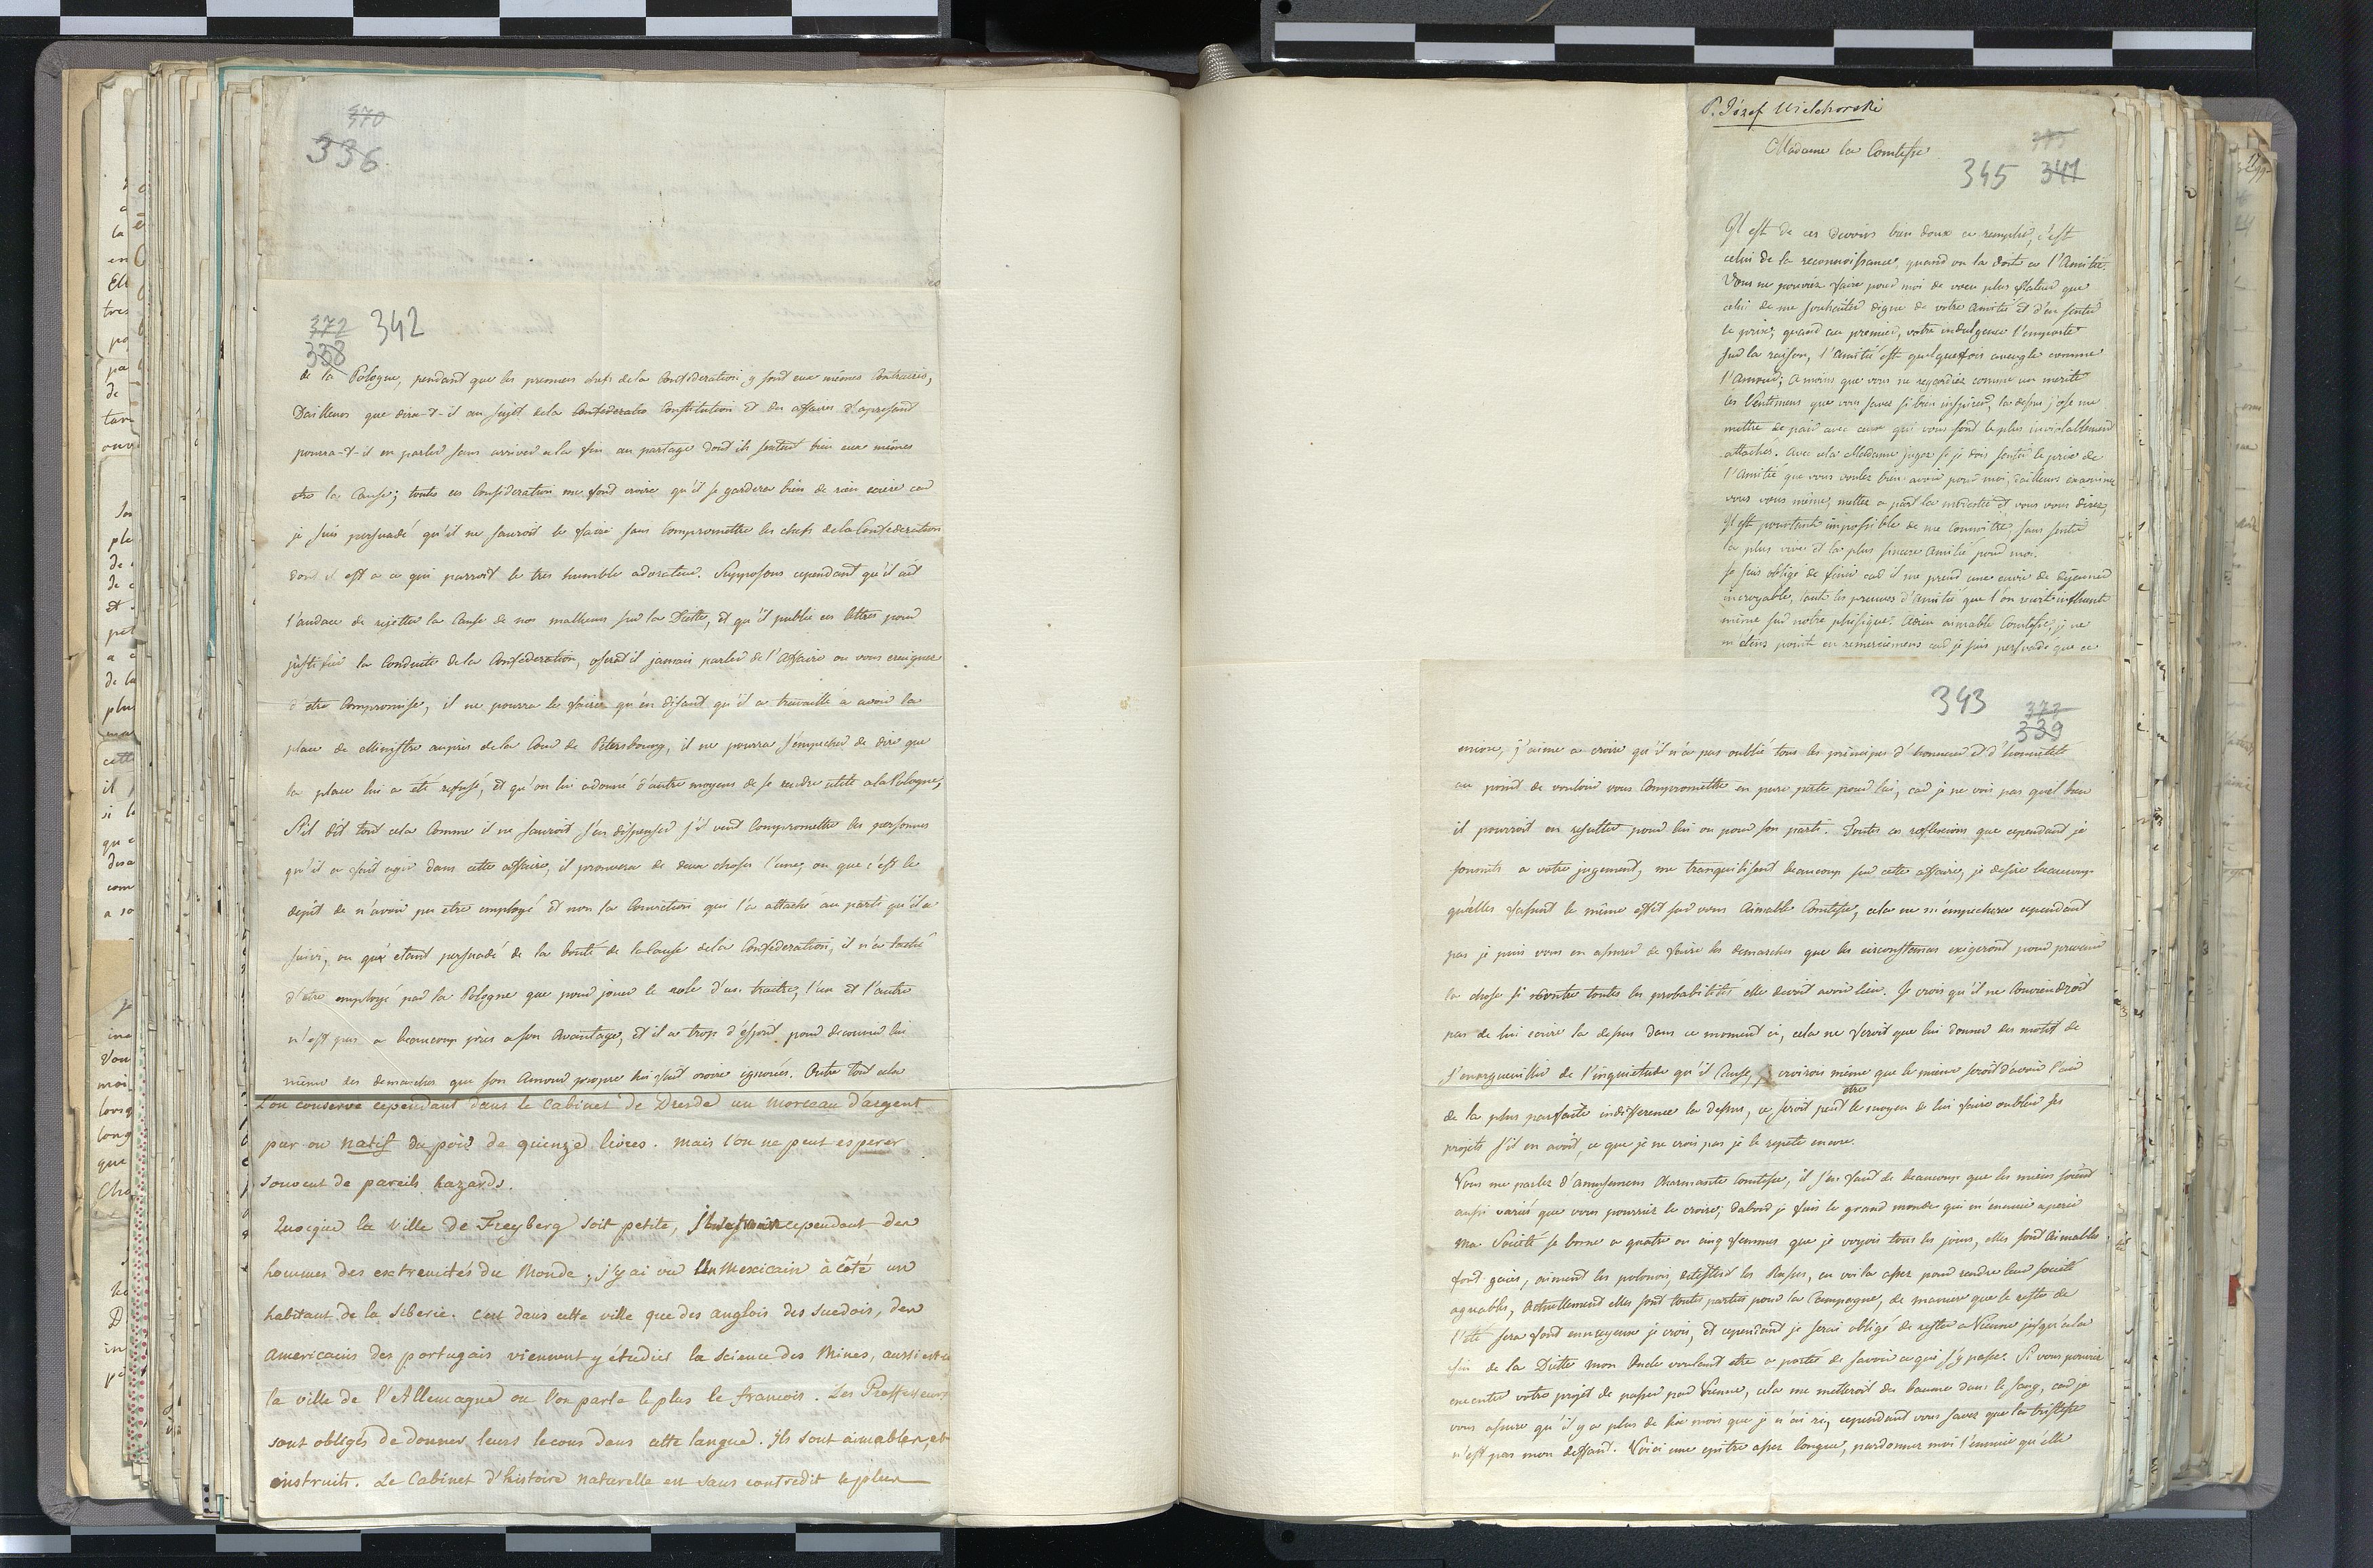 370
336
372 342
338
de la Pologne, pendant que les premiers chefs de la Confederation y sont eux mêmes contraires,
Dailleurs que dira-t-il au sujet de la Confederatio Constitution et des affaires d'apresent
pourra-t-il en parler sans arriver a la fin au partage dont ils sentent bien eux mêmes
etre la Cause; toutes ces Consideration me font croire qu'il se gardera bien de rien ecrire car
je suis persuadé qu'il ne sauroit le faire sans Compromettre les chefs de la Confederation
dont il est a ce qui parroit le tres humble adorateur. Supposons cependant qu'il ait
l'audace de rejetter la Cause de nos malheurs sur la Diette, et qu'il publie ces lettres pour
justifier la Conduite de la Confederation, oserat'il jamais parler de l'Affaire ou vous craignez
d'etre Compromise, il ne pourra le faire qu'en disant qu'il a travaillé a avoir la
place de Ministre aupres de la Cour de Petersbourg, il ne pourra s'empecher de dire que
la place lui a été refusé, et qu'on lui a donné d'autre moyens de se rendre utile a la Pologne,
S'il dit tout cela Comme il ne sauroit s'en dispenser s'il veut Compromettre les personnes
qu'il a fait agir dans cette affaire, il prouvera de deux choses l'une, ou que c'est le
depit de n'avoir pu etre employé et non la Conviction qui l'a attaché au parti qu'il a
suivi, ou qu'etant persuadé de la bonté de la Cause de la Confederation, il n'a taché
d'etre employé par la Pologne que pour jouer le role d'un traitre, l'un et l'autre
n'est pas a beaucoup près a son Avantage, et il a trop d'esprit pour decouvrir lui
même des demarches que son Amour propre lui fait croire ignorées. Outre tout cela
L'on conserve cependant dans le Cabinet de Dresde un morceau d'argent
pur ou natif du poid de quienze livres. mais l'on ne peut esperer
souvent de pareils hazards.
Quoique la ville de Freyberg soit petite, cependant des
hommes des extremités du Monde; j'y ai vu Un Mexicain à côté un
habitant de la Siberie. c'est dans cette ville que des anglois des suedois, des
americains des portugais viennent y étudier la science des Mines, aussi est-ce
la ville de l'Allemagne ou l'on parle le plus le francois. Les Professeurs
sont obligés de donner leurs lecons dans cette langue. Ils sont aimables, et
instruits. Le Cabinet d'histoire naturelle est sans contredit le plus
P. Józef Wielhorski
Madame la Comtesse
375
345 341
Il est de ces devoirs bien doux a remplir, c'est
celui de la reconnoissance, quand on la doit a l'Amitié.
Vous ne pouviez faire pour moi de voeu plus flateur que
celui de me souhaiter digne de votre Amitié et d'en sentir
le prix; quand au premier, votre indulgence l'emporte
sur la raison, l'Amitié est quelquefois aveugle comme
l'Amour; a moins que vous ne regardiez comme un merite
les Sentimens que vous savez si bien inspirer, la dessus j'ose me
mettre de pair avec ceux qui vous sont le plus inviolablement
attachés. Avec cela Madame jugez si je dois sentir le prix de
l'Amitié que vous voulez bien avoir pour moi, dailleurs examinez
vous vous même, mettez a part la modestie et vous vous direz,
Il est pourtant impossible de me Connoitre sans sentir
la plus vive et la plus sincere Amitié pour moi.
Je suis obligé de finir car il me prend une envie de dejeuner
incroyable, tant les preuves d'Amitié que l'on recoit influent
même sur notre phisique. Adieu aimable Comtesse, je ne
m'etens point en remerciemens car je suis persuadé que ce
343 373
339
encore, j'aime a croire qu'il n'a pas oublié tous les principes d'honneur et d'honnêteté
au point de vouloir vous Compromettre en pure perte pour lui, car je ne vois pas quel bien
il pourroit en resulter pour lui ou pour son parti. Toutes ces reflexions que cependant je
soumets a votre jugement, me tranquilisent beaucoup sur cette affaire, je desire beaucoup
qu'elles fassent le même effet sur vous Aimable Comtesse, cela ne m'empechera cependant
pas je puis vous en assurer de faire les demarches que les circonstances exigeront pour prevenir
la chose si contre toutes les probabilités elle devoit avoir lieu. Je crois qu'il ne Conviendroit
pas de lui ecrire la dessus dans ce moment ci, cela ne feroit que lui donner des motif de
s'enorgueuillir de l'inquietude qu'il Cause, je croirois même que le mieux seroit d'avoir l'air
de la plus parfaite indifference la dessus, ce seroit peut etre le moyen de lui faire oublier ses
projets s'il en avoit, ce que je ne crois pas je le repete encore.
Vous me parlez d'amusemens Charmante Comtesse, il s'en faut de beaucoup que les miens soient
aussi variés que vous pourriez le croire; dabord je fuis le grand monde qui m'ennuie a perir
Ma Société se borne a quatre ou cinq femmes que je voyois tous les jours, elles sont Aimables,
font gaies, aiment les polonois, detestent les Russes, en voila assez pour rendre leur societé
agreables, Actuellement elles sont toutes parties pour la Campagne, de maniere que le reste de
l'été sera fort ennuyeux je crois, et cependant je serai obligé de rester a Vienne jusqu'a la
fin de la Diette mon Oncle voulant etre a portée de savoir ce qui s'y passe. Si vous pouviez
executer votre projet de passer par Vienne, cela me metteroit du baume dans le sang, car je
vous assure qu'il y a plus de six mois que je n'ai ri, cependant vous savez que la tristesse
n'est pas mon deffaut. Voici une epitre assez longue, pardonnez moi l'ennuie qu'elle